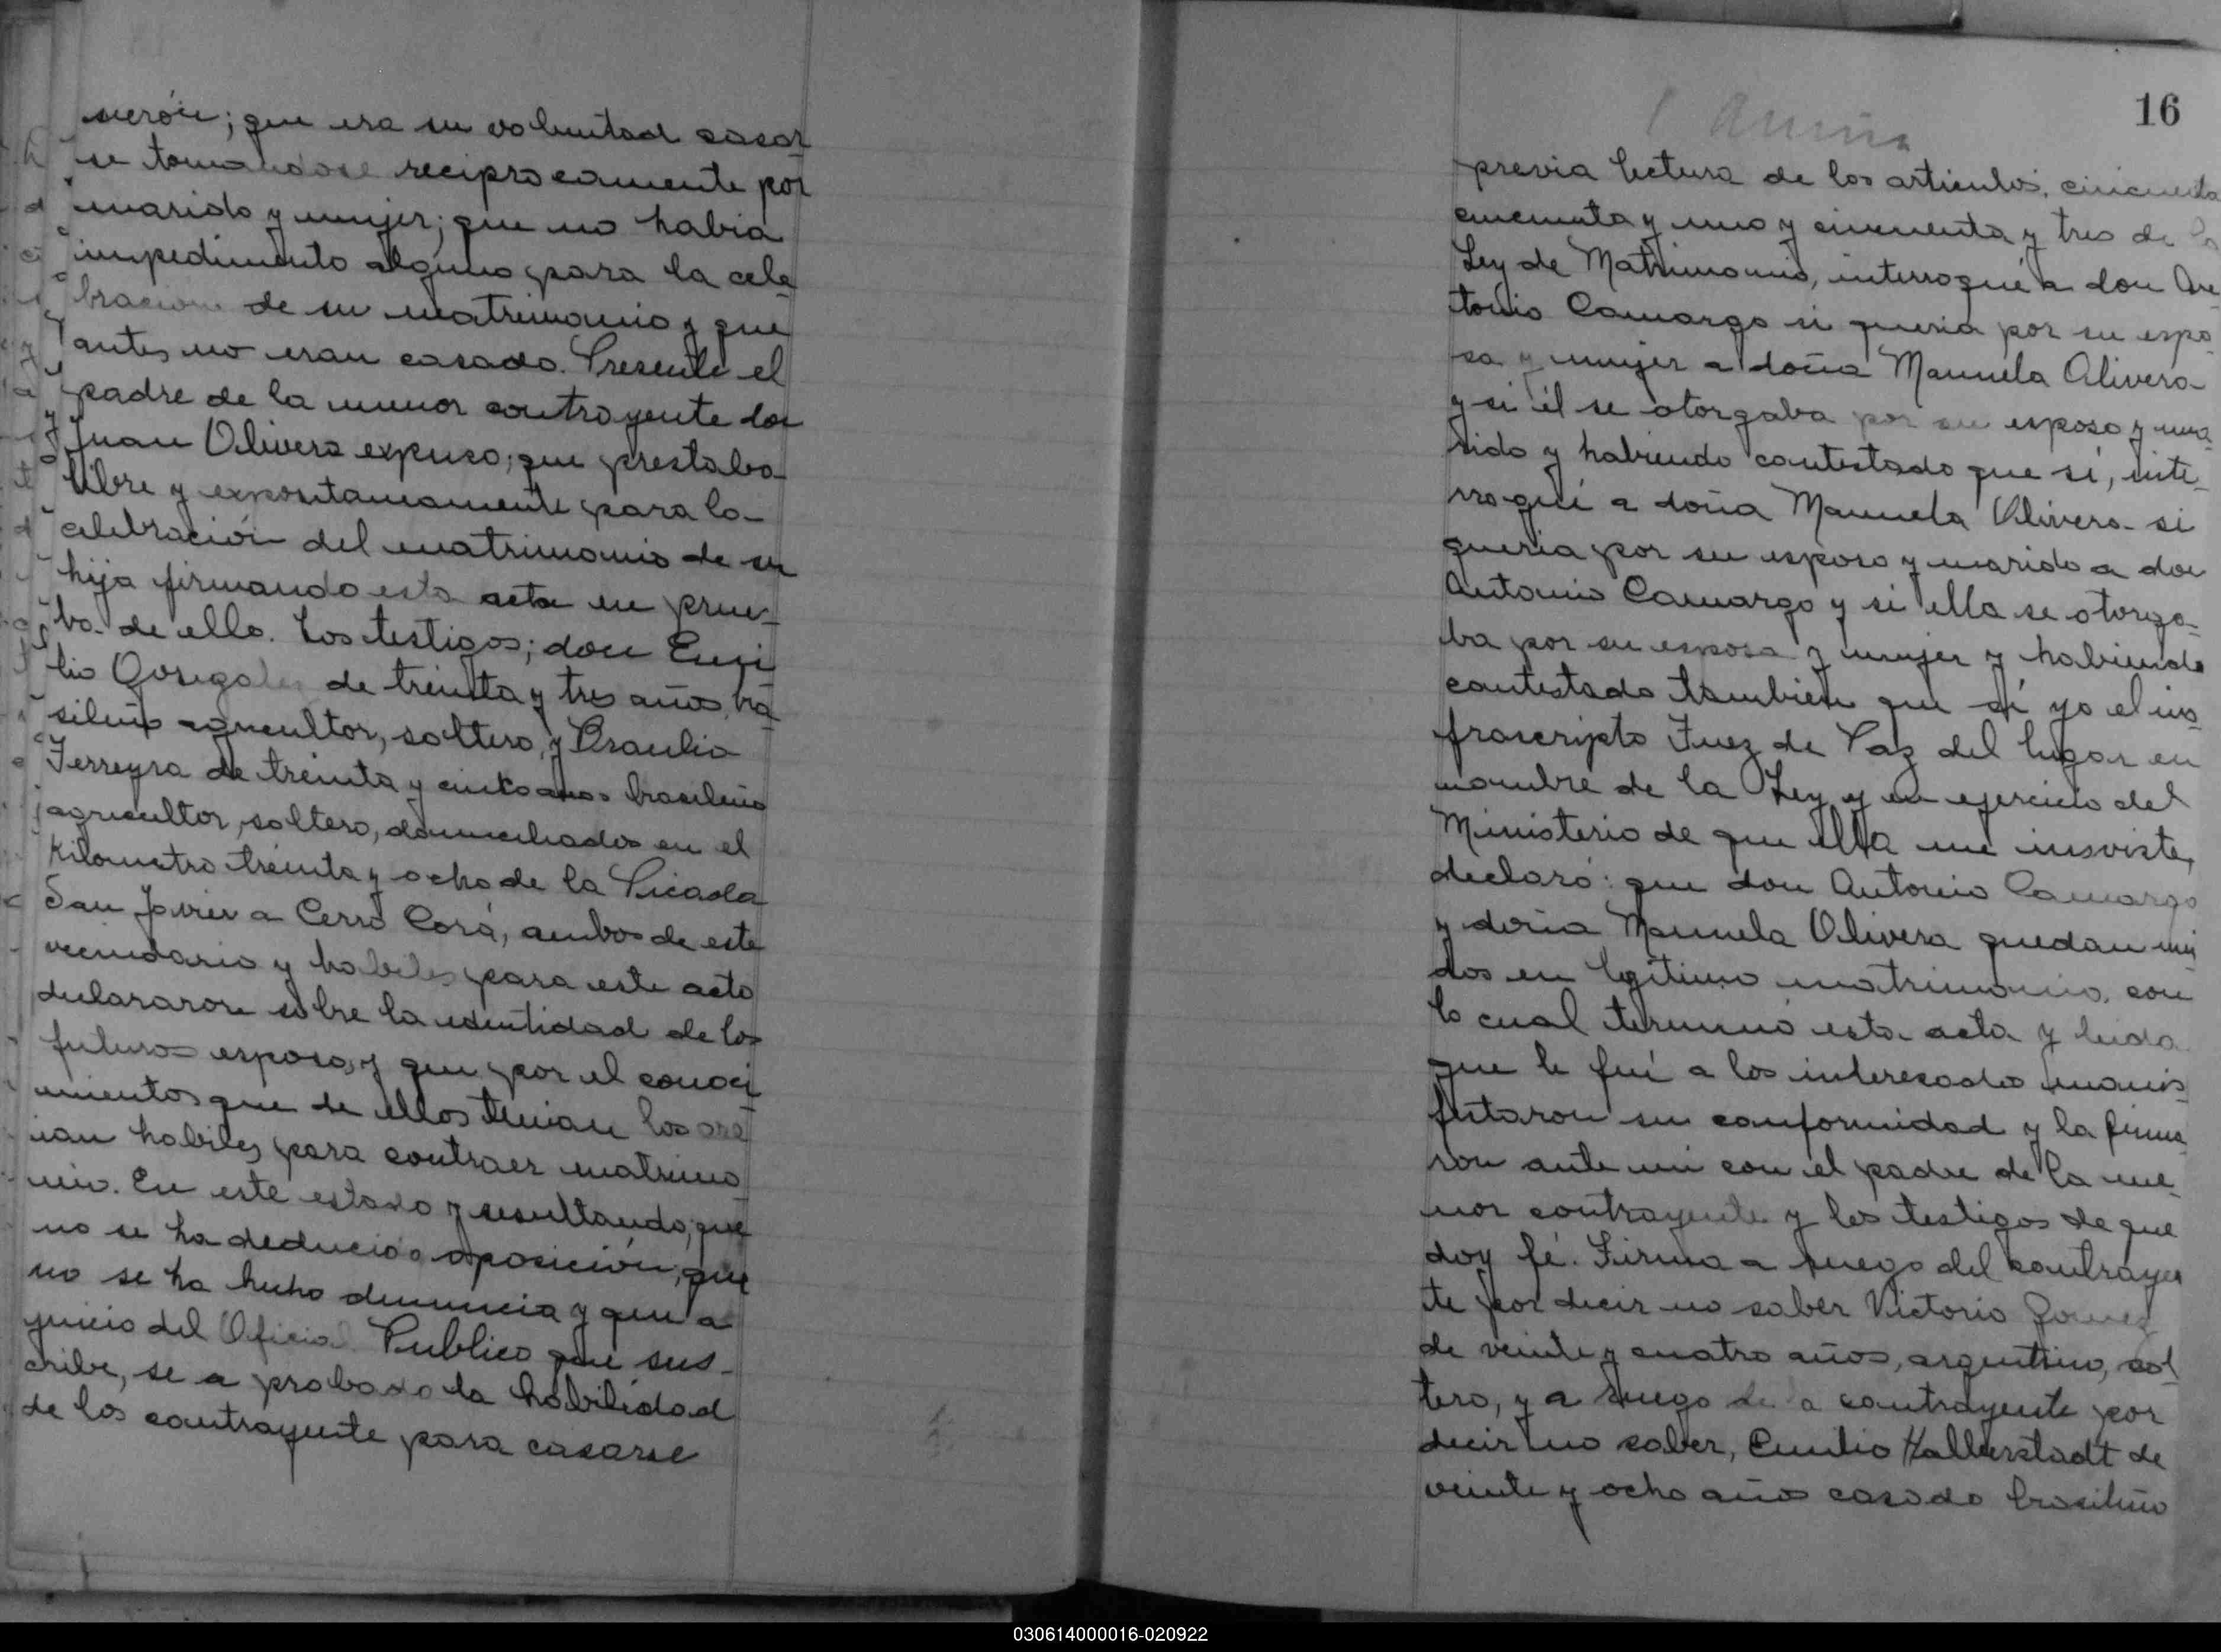 sieron; que era su voluntad casar
se tomandose reciprocamente por
marido y mujer; que no habia
impedimento alguno para la cele
bracion de su matrimonio y que
antes no eran casado. Presente el
padre de la menor contrayente don
Juan Olivera expuso; que prestaba
libre y expontanamente para la
celebración del matrimonio de su
hija firmando esta acta en prue-
ba de ello. Los testigos; don Emi
lio Gonzalez de treinta y tres años, bra
sileño agricultor, soltero, y Braulio
Ferreyra de treinta y cinco años brasileño
agricultor, soltero, domiciliados en el
Kilometro treinta y ocho de la Picada
San Javier a Cerro Corá, ambos de este
vecindario y habiles para este acto
declararon sobre la identidad de los
futuros esposos, y que por el conoci
mientos que de ellos tenian los
ian habiles para contraer matrimo
nio. En este estado y resultando, que
no se ha deducido oposición; que
no se ha hecho denuncia y que a
juicio del Oficial Publico que sus-
cribe, se a probado la habilidad
de los contrayente para casarse
16
previa lectura de los articulos, cincuenta
cincuenta y uno y cincuenta y tres de la
Ley de Matrimonio, interrogué a don An
tonio Camargo si queria por su espo
sa y mujer a doña Manuela Olivera
y si él se otorgaba por su esposo y ma
rido y habiendo contestado que si, inte-
rrogué a doña Manuela Olivera si
queria por su esposo y marido a don
Antonio Camargo y si ella se otorga-
ba por su esposa y mujer y habiendo
contestado tambien que sí yo el in
frascripto Juez de Paz del lugar en
nombre de la Ley y en ejercicio del
Ministerio de que ella me inviste,
declaró: que don Antonio Camargo
y doña Manuela Olivera quedan uni
dos en legitimo matrimonio, con
lo cual terminó esta acta y leida
que le fué a los interesados manis
festaron su conformidad y la firma
ron ante mi con el padre de la me-
nor contrayente y los testigos de que
doy fé. Firma a ruego del contrayen
te por decir no saber Victorio Gomez
de veinte y cuatro años, argentino, sol
tero, y a ruego de la contrayente por
decir no saber, Emilio Halberstadt de
veinte y ocho años casado brasileño
030614000016-020922